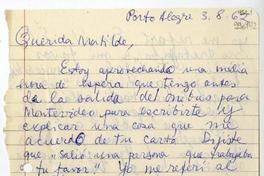 Porto Alegre 3.8.62
Querida Matilde,
Estoy aprovechando una media
hora de espera que tengo antes
de la salida del onibus para
Montevideo para escribirte y
explicar una cosa que me
acuerdo de tu carta. Dijiste
que "Salió una persona que trabajaba
tu favor" Yo me referí al